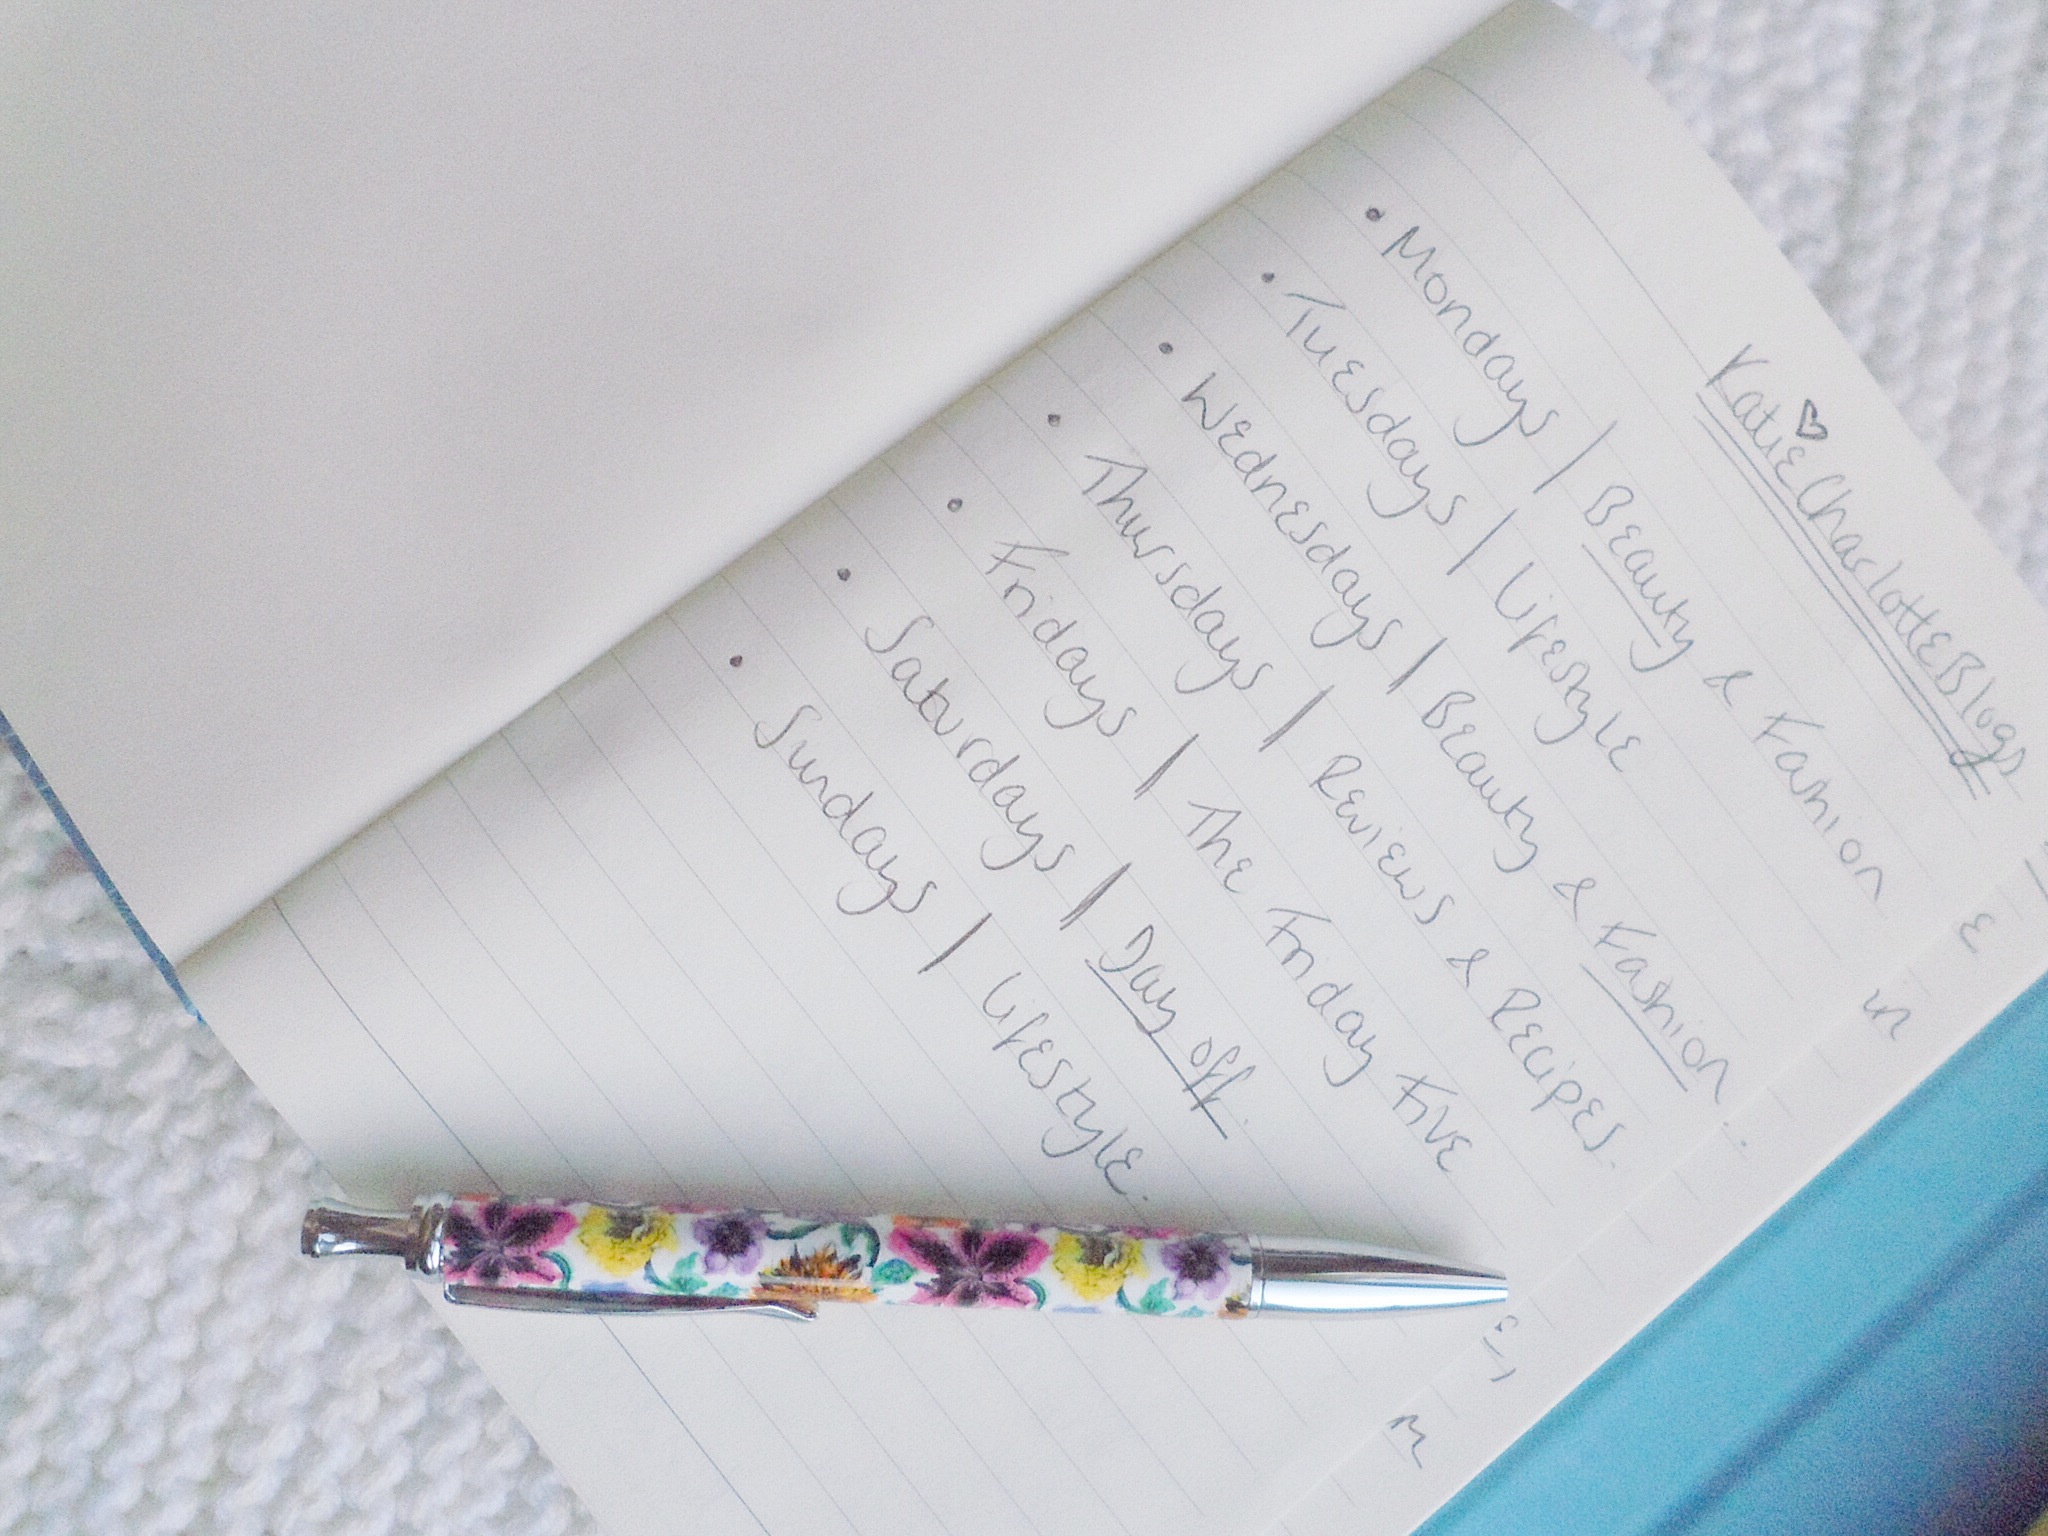 KatieCharlotteBlogs
• Mondays | Beauty & Fashion
• Tuesdays | Lifestyle
• Wednesdays | Beauty & Fashion
• Thursdays | Reviews & Recipes.
• Fridays | The Friday Five
• Saturdays | Day off.
• Sundays | Lifestyle.